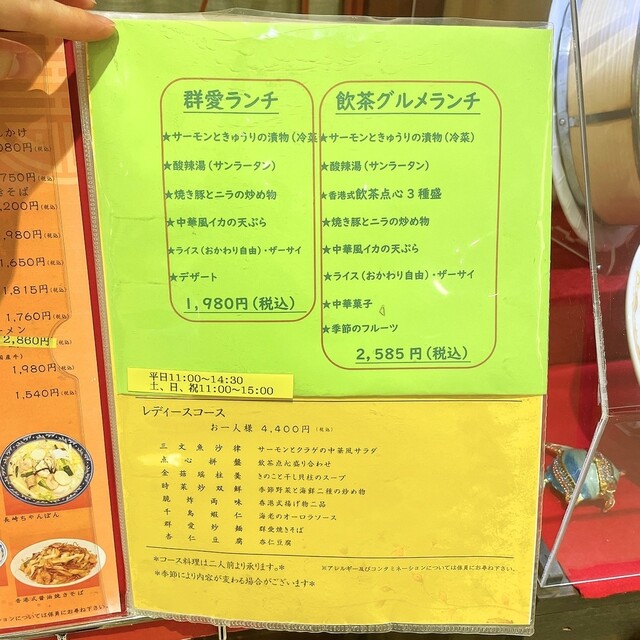 んかけ
080円(税込)
750円(税込)
きそば
,200円(税込)
,980円(税込)
1,650円(税込)
1,815円(税込)
1,760円(税込)
ーメン
2,860円(税込)
国産牛)
1,980円(税込)
1,540円(税込)
長崎ちゃんぽん
香港式醤油焼きそば
ションについては係員にお尋ね下さい。
群愛ランチ
★サーモンときゅうりの漬物(冷菜
★酸辣湯(サンラータン)
★焼き豚とニラの炒め物
★中華風イカの天ぷら
★ライス(おかわり自由)・ザーサイ
★デザート
1,980円(税込)
飲茶グルメランチ
★サーモンときゅうりの漬物(冷菜)
★酸辣湯(サンラータン)
★香港式飲茶点心3種盛
★焼き豚とニラの炒め物
★中華風イカの天ぷら
★ライス(おかわり自由)・ザーサイ
★中華菓子
★季節のフルーツ
2,585円(税込)
平日11:00~14:30
土、日、祝11:00~15:00
レディースコース
お一人様 4,400円(税込)
三文魚沙律 サーモンとクラゲの中華風サラダ
点心拼盤 飲茶点心盛り合わせ
金菇瑶柱羹 きのこと干し貝柱のスープ
時菜炒双鮮 季節野菜と海鮮二種の炒め物
脆炸両味 香港式揚げ物二品
千島蝦仁 海老のオーロラソース
群愛炒麺 群愛焼きそば
杏仁豆腐 杏仁豆腐
*コース料理は二人前より承ります。*
*季節により内容が変わる場合がございます*
※アレルギー及びコンタミネーションについては係員にお尋ね下さい。